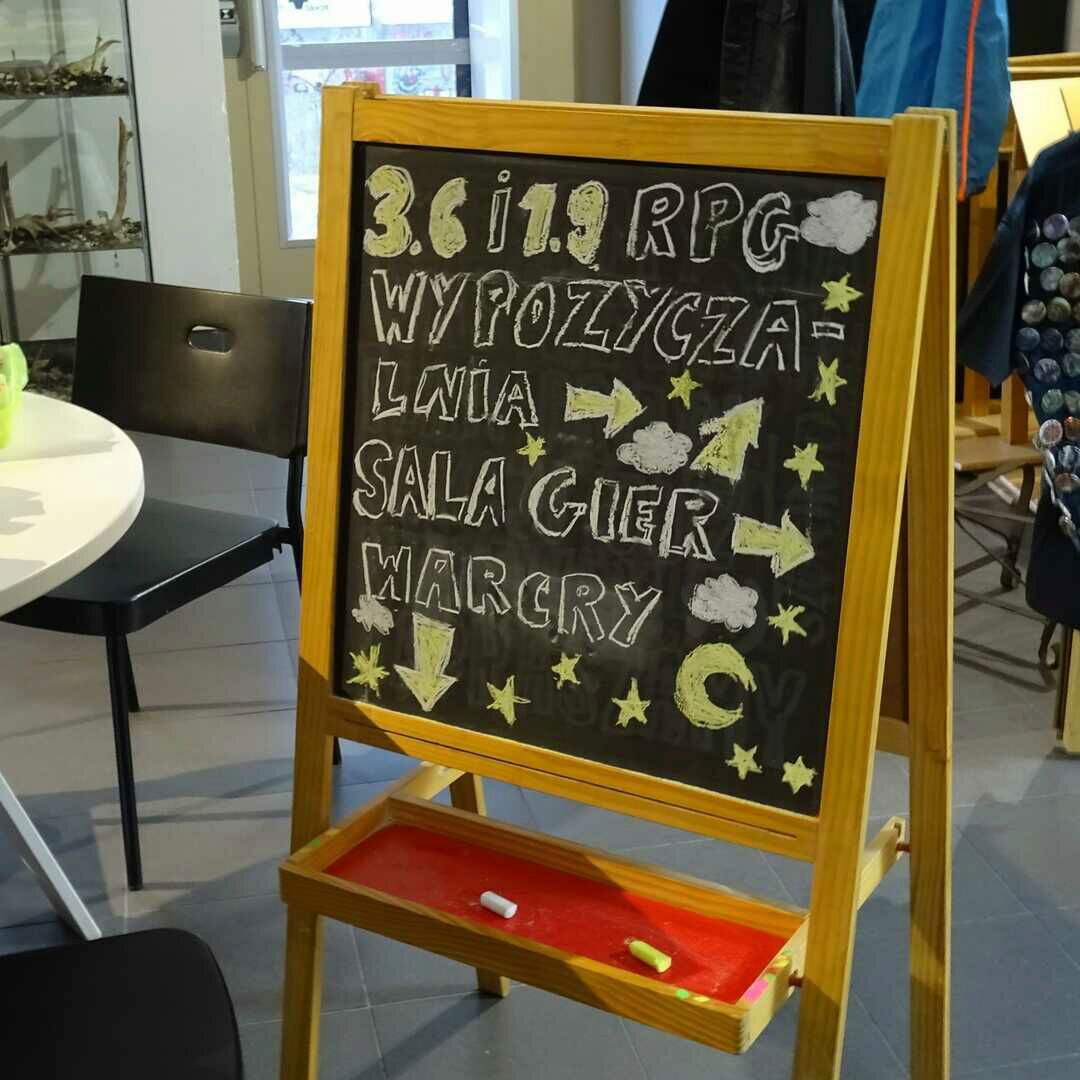 3.6 i 1.9 RPG
WYPOZYCZA-
LNIA
SALA GIER
WARCRY